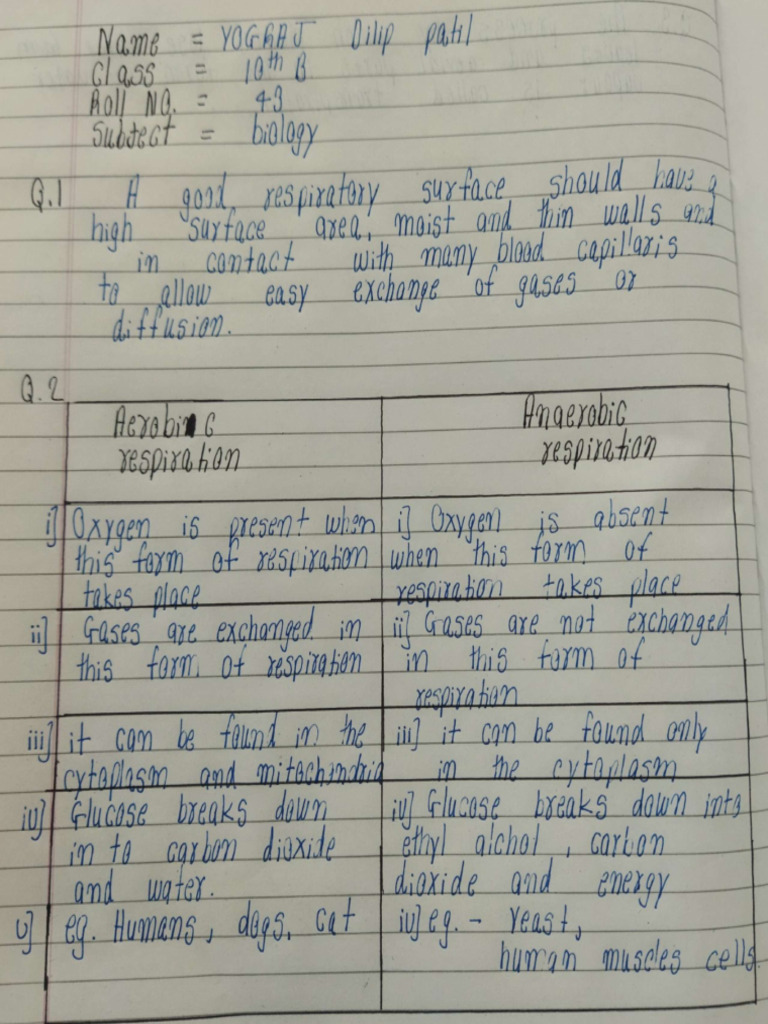 Name = YOGRAJ Dilip patil
Class = 10th B
Roll NO. = 43
Subject = biology
Q.1 A good respiratory surface should have a
high surface area, moist and thin walls and
in contact with many blood capillaris
to allow easy exchange of gases or
diffusion.
Q.2
Aerobic respiration
Anaerobic respiration
i] Oxygen is present when
this form of respiration
takes place
i] Oxygen is absent
when this form of
respiration takes place
ii] Gases are exchanged in
this form of respiration
ii] Gases are not exchanged
in this form of
respiration
iii] it can be found in the
cytoplasm and mitochindria
iii] it can be found only
in the cytoplasm
iv] Glucose breaks down
in to carbon dioxide
and water.
iv] Glucose breaks down into
ethyl alchol, carbon
dioxide and energy
v] eg. Humans, dogs, cat
iv] eg. - Yeast,
human muscles cells.